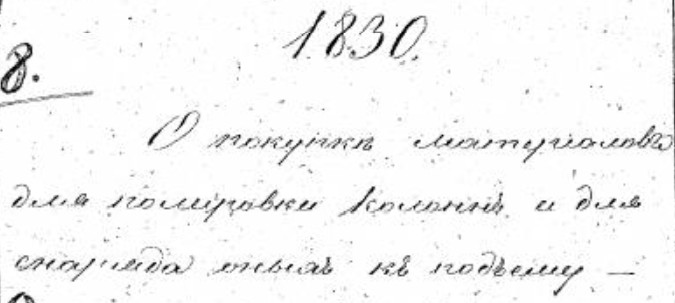 1830.
8.
О покупкѣ матеріаловъ
для полировки колоннъ и для
снаряда оныхъ къ подъему —